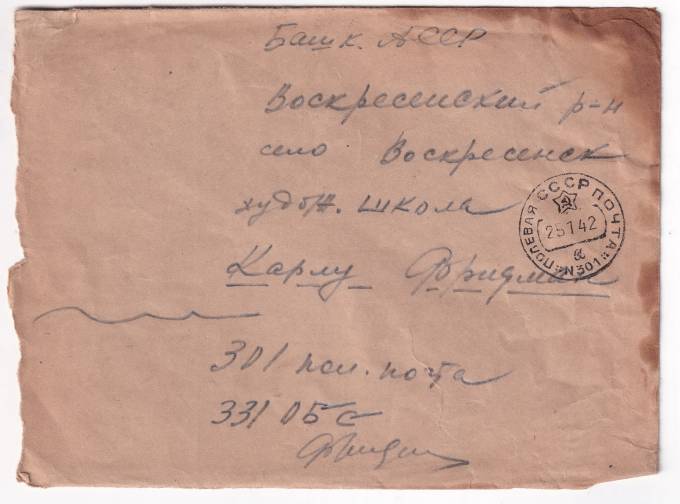 Башк. АССР
Воскресенский р-н
село Воскресенск
худож. школа
Карлу Фридман
301 пол. почта
331 ОБС
Фридман
ПОЛЕВАЯ СССР ПОЧТА
25 1 42
№301